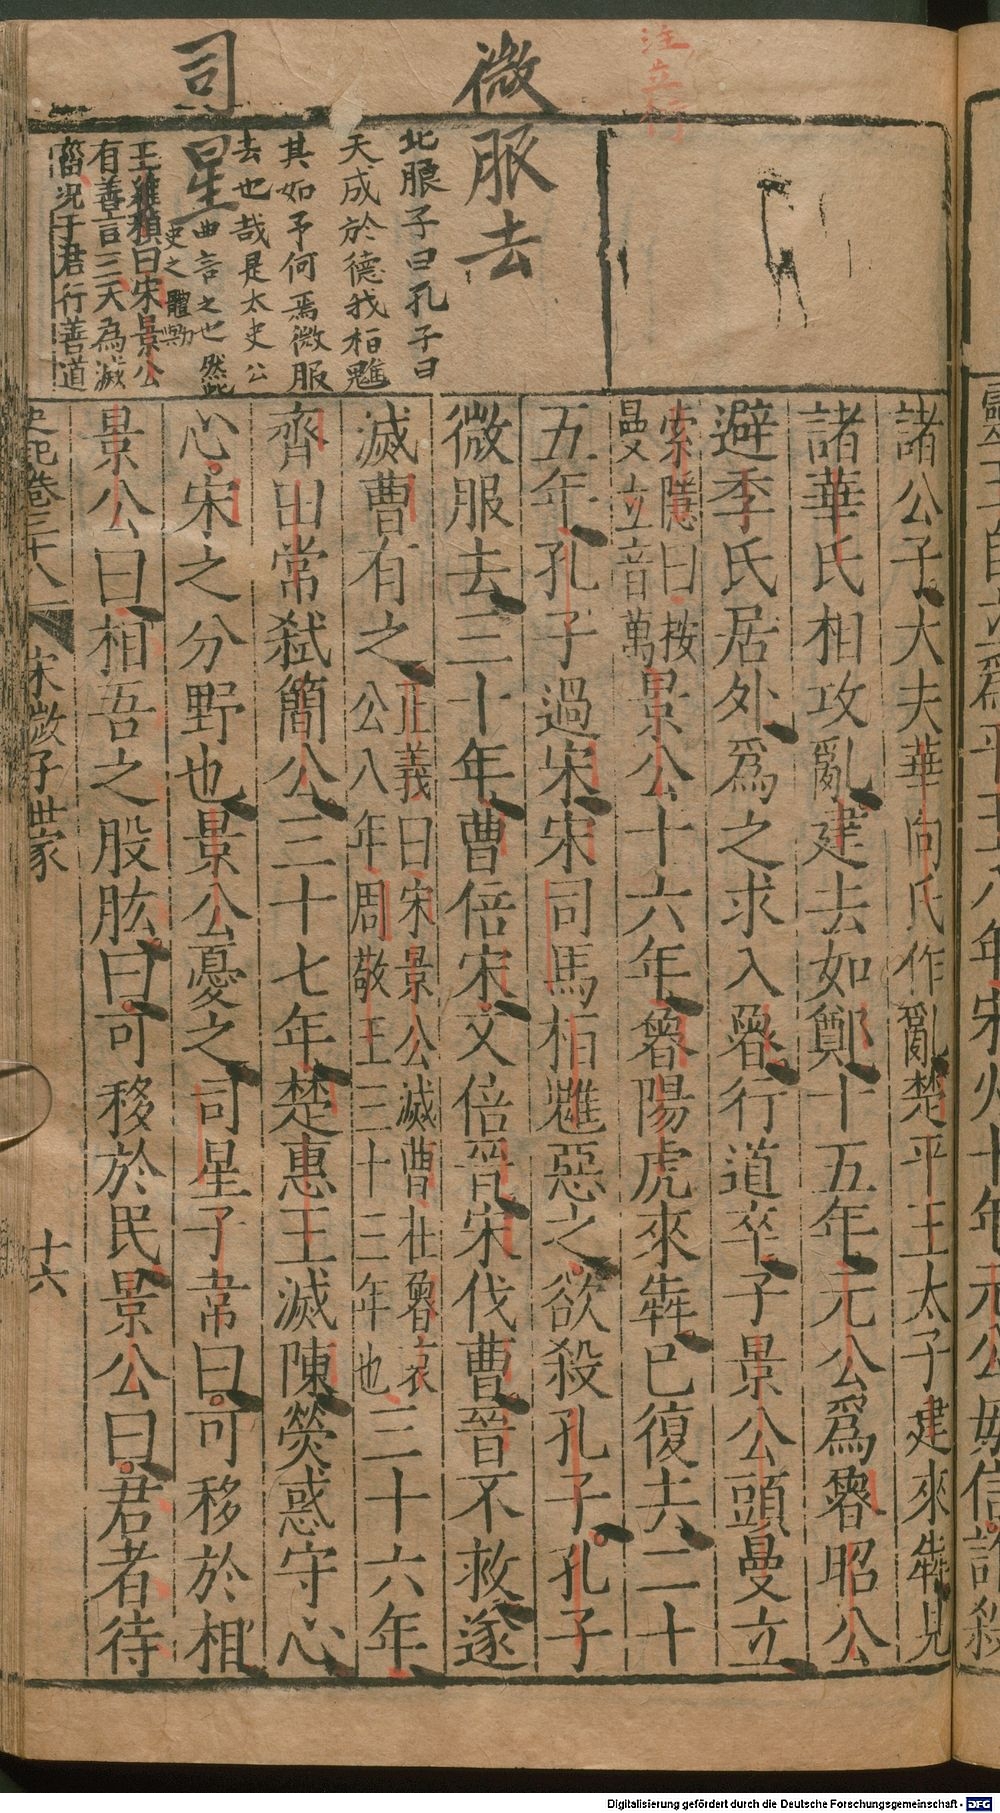 注立行
微服去
北服子曰孔子曰
天成於德我栢魋
其如予何焉微服
去也哉是太史公
司星
曲言之也然此
史之體勢
王維楨曰宋景公
有善言三天為滅
菑況于君行善道
諸公子大夫華向氏作亂楚平王太子建來犇見
諸華氏相攻亂建去如鄭十五年元公爲魯昭公
避季氏居外爲之求入魯行道卒子景公頭曼立
索隱曰按
曼立音萬
景公十六年魯陽虎來犇已復去二十
五年孔子過宋宋司馬栢魋惡之欲殺孔子孔子
微服去三十年曹倍宋又倍晉宋伐曹晉不救遂
滅曹有之
正義曰宋景公滅曹在魯哀
公八年周敬王三十三年也
三十六年
齊田常弑簡公三十七年楚惠王滅陳熒惑守心
心宋之分野也景公憂之司星子韋曰可移於相
景公曰相吾之股肱曰可移於民景公曰君者待
史記卷三十八 宋微子世家 十六
Digitalisierung gefördert durch die Deutsche Forschungsgemeinschaft - DFG